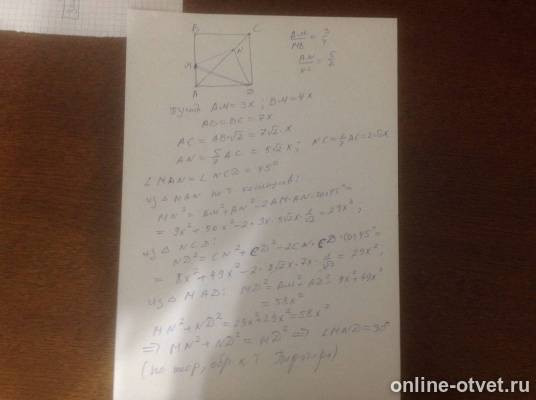 B C
M N
A D
AM/MB = 3/4
AN/NC = 5/2
Пусть AM = 3x; BM = 4x
AD = DC = 7x
AC = AB·√2 = 7√2·x
AN = 5/7 AC = 5√2x; NC = 2/7 AC = 2√2x
∠MAN = ∠NCD = 45°
из △MAN по т. косинусов:
MN² = AM² + AN² - 2AM·AN·cos45° =
= 9x² + 50x² - 2·3x·5√2x·1/√2 = 29x²;
из △NCD:
ND² = CN² + CD² - 2CN·CD·cos45° =
= 8x² + 49x² - 2·2√2x·7x·1/√2 = 29x²;
из △MAD: MD² = AM² + AD² = 9x² + 49x²
= 58x²
MN² + ND² = 29x² + 29x² = 58x²
⇒ MN² + ND² = MD² ⇒ ∠MND = 90°
(по теор., обр. к т. Пифагора)
online-otvet.ru